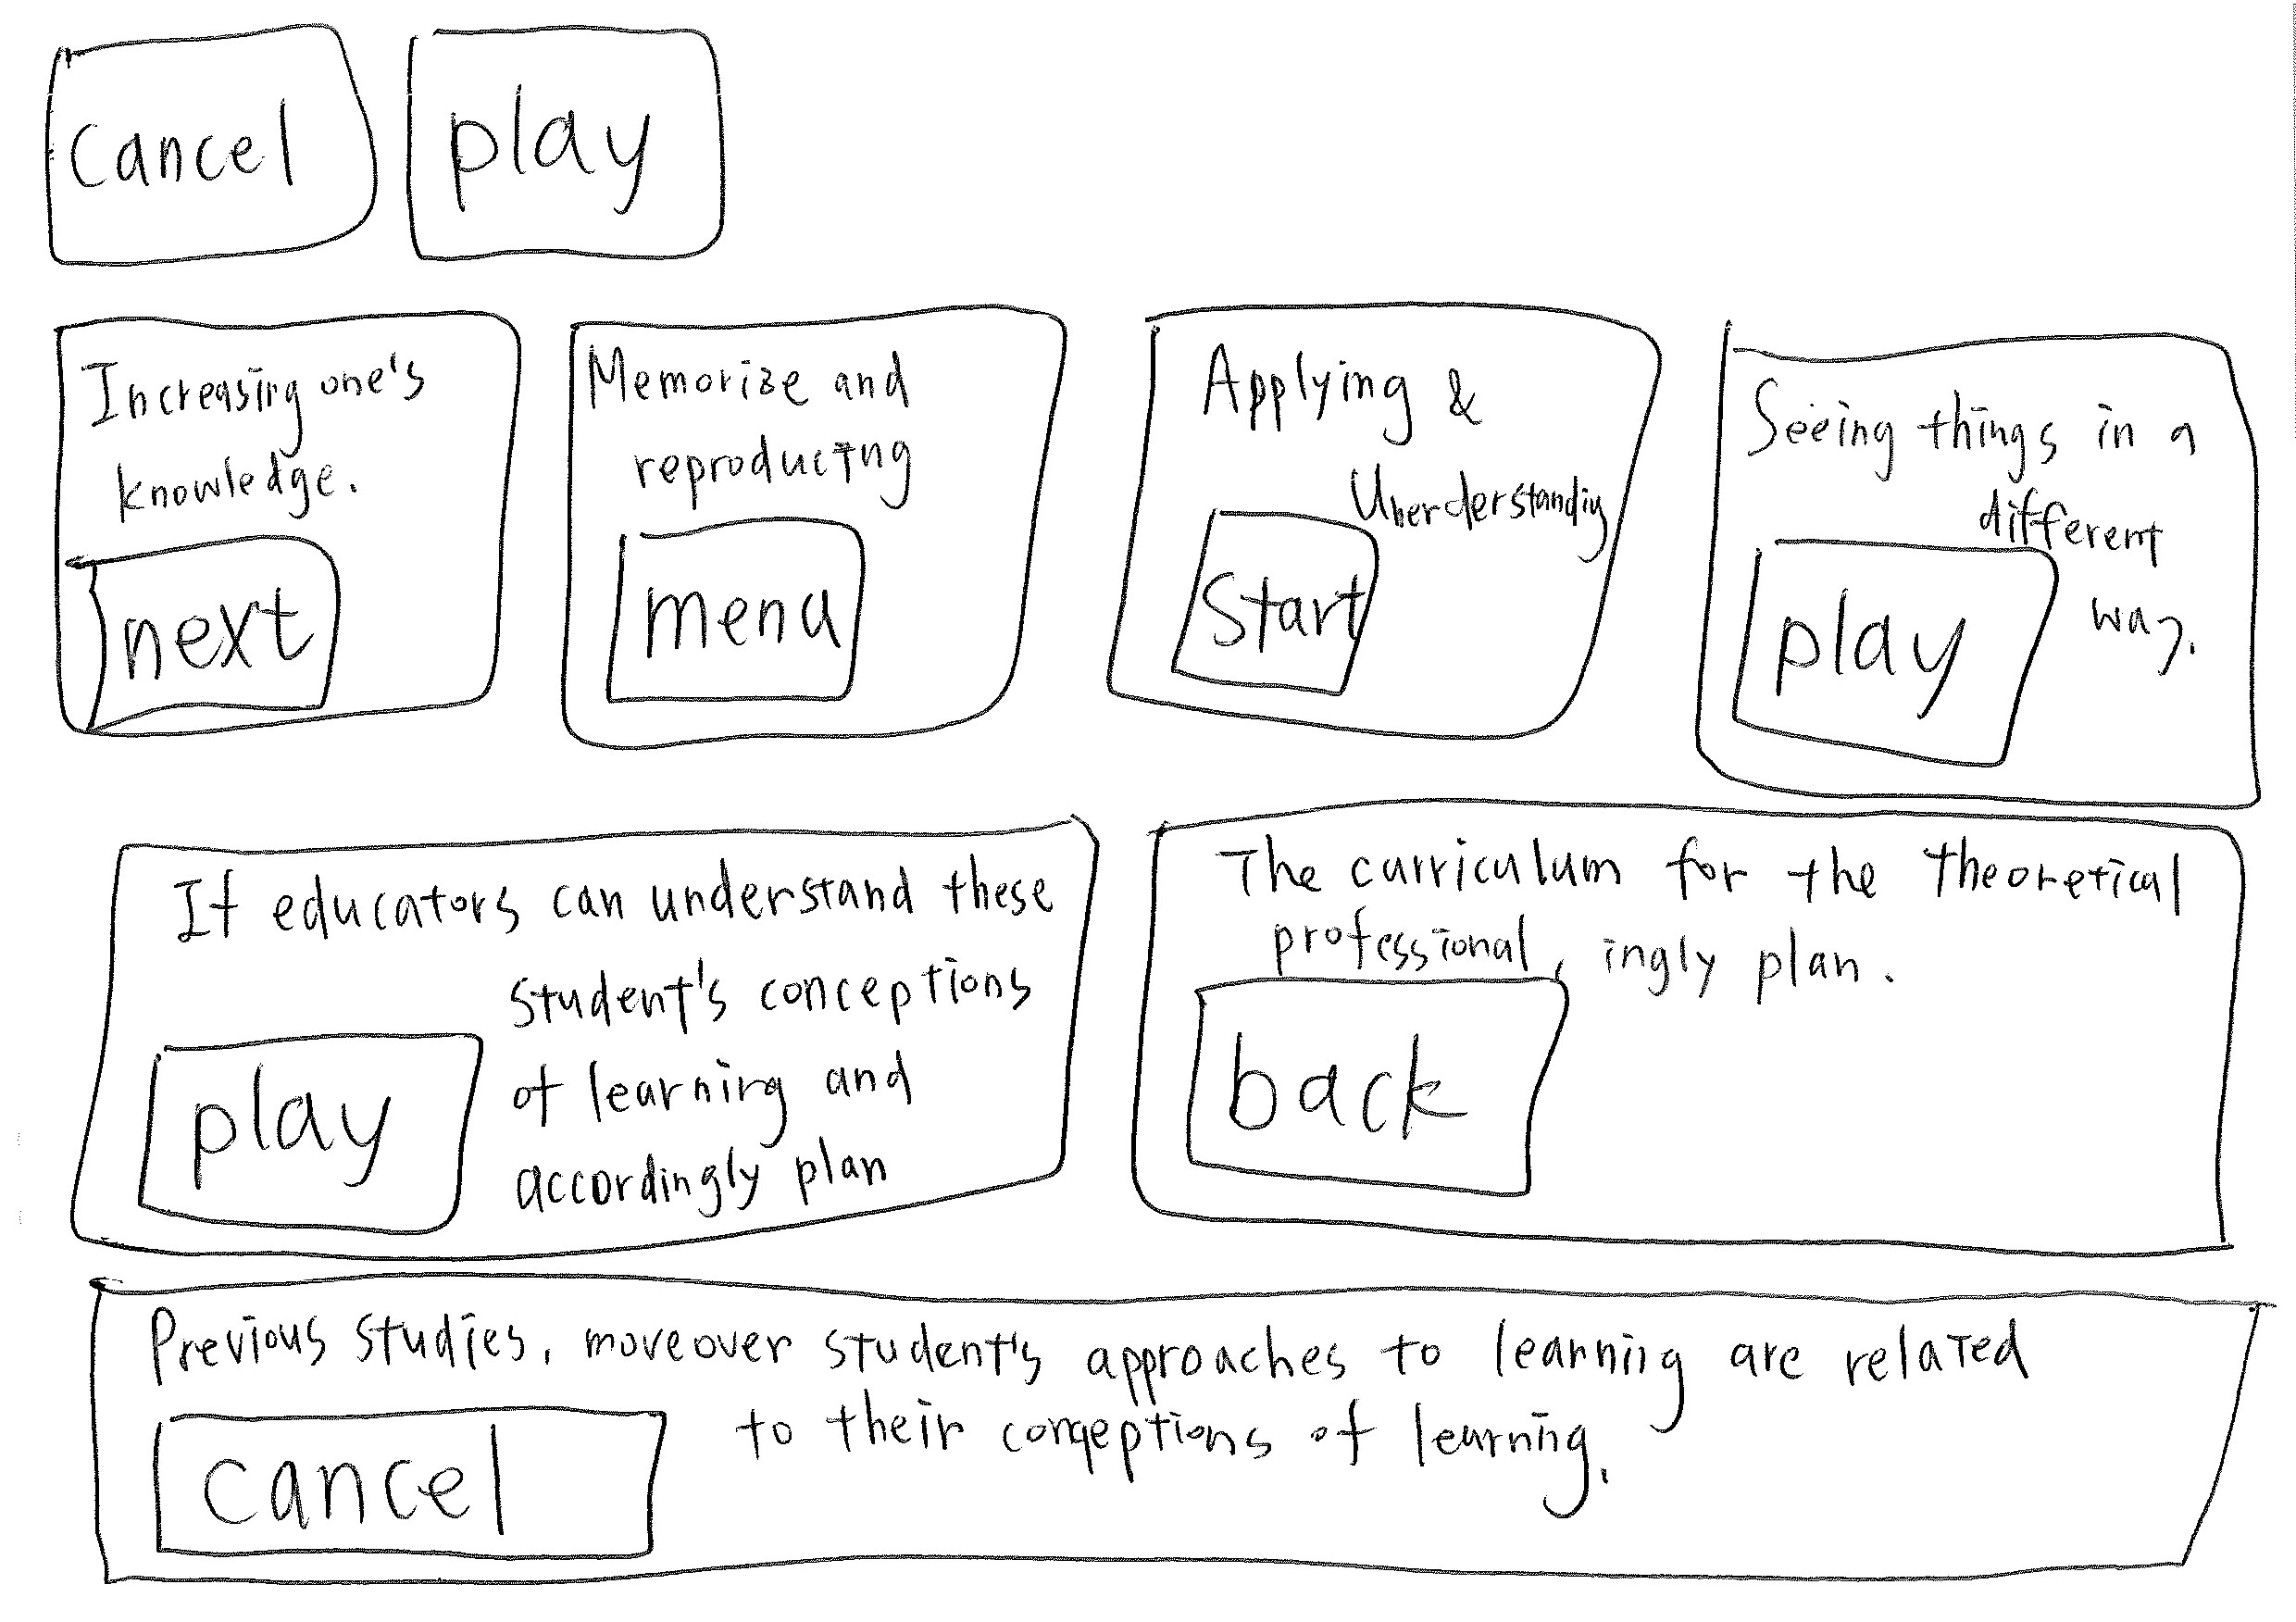 cancel play
Increasing one's
knowledge.
next
Memorize and
reproducing
menu
Applying &
Uherderstanding
Start
Seeing things in a
different
way.
play
If educators can understand these
student's conceptions
of learning and
accordingly plan
play
The curriculum for the theoretical
professional, ingly plan.
back
Previous studies, moreover student's approaches to learning are related
to their conceptions of learning.
cancel